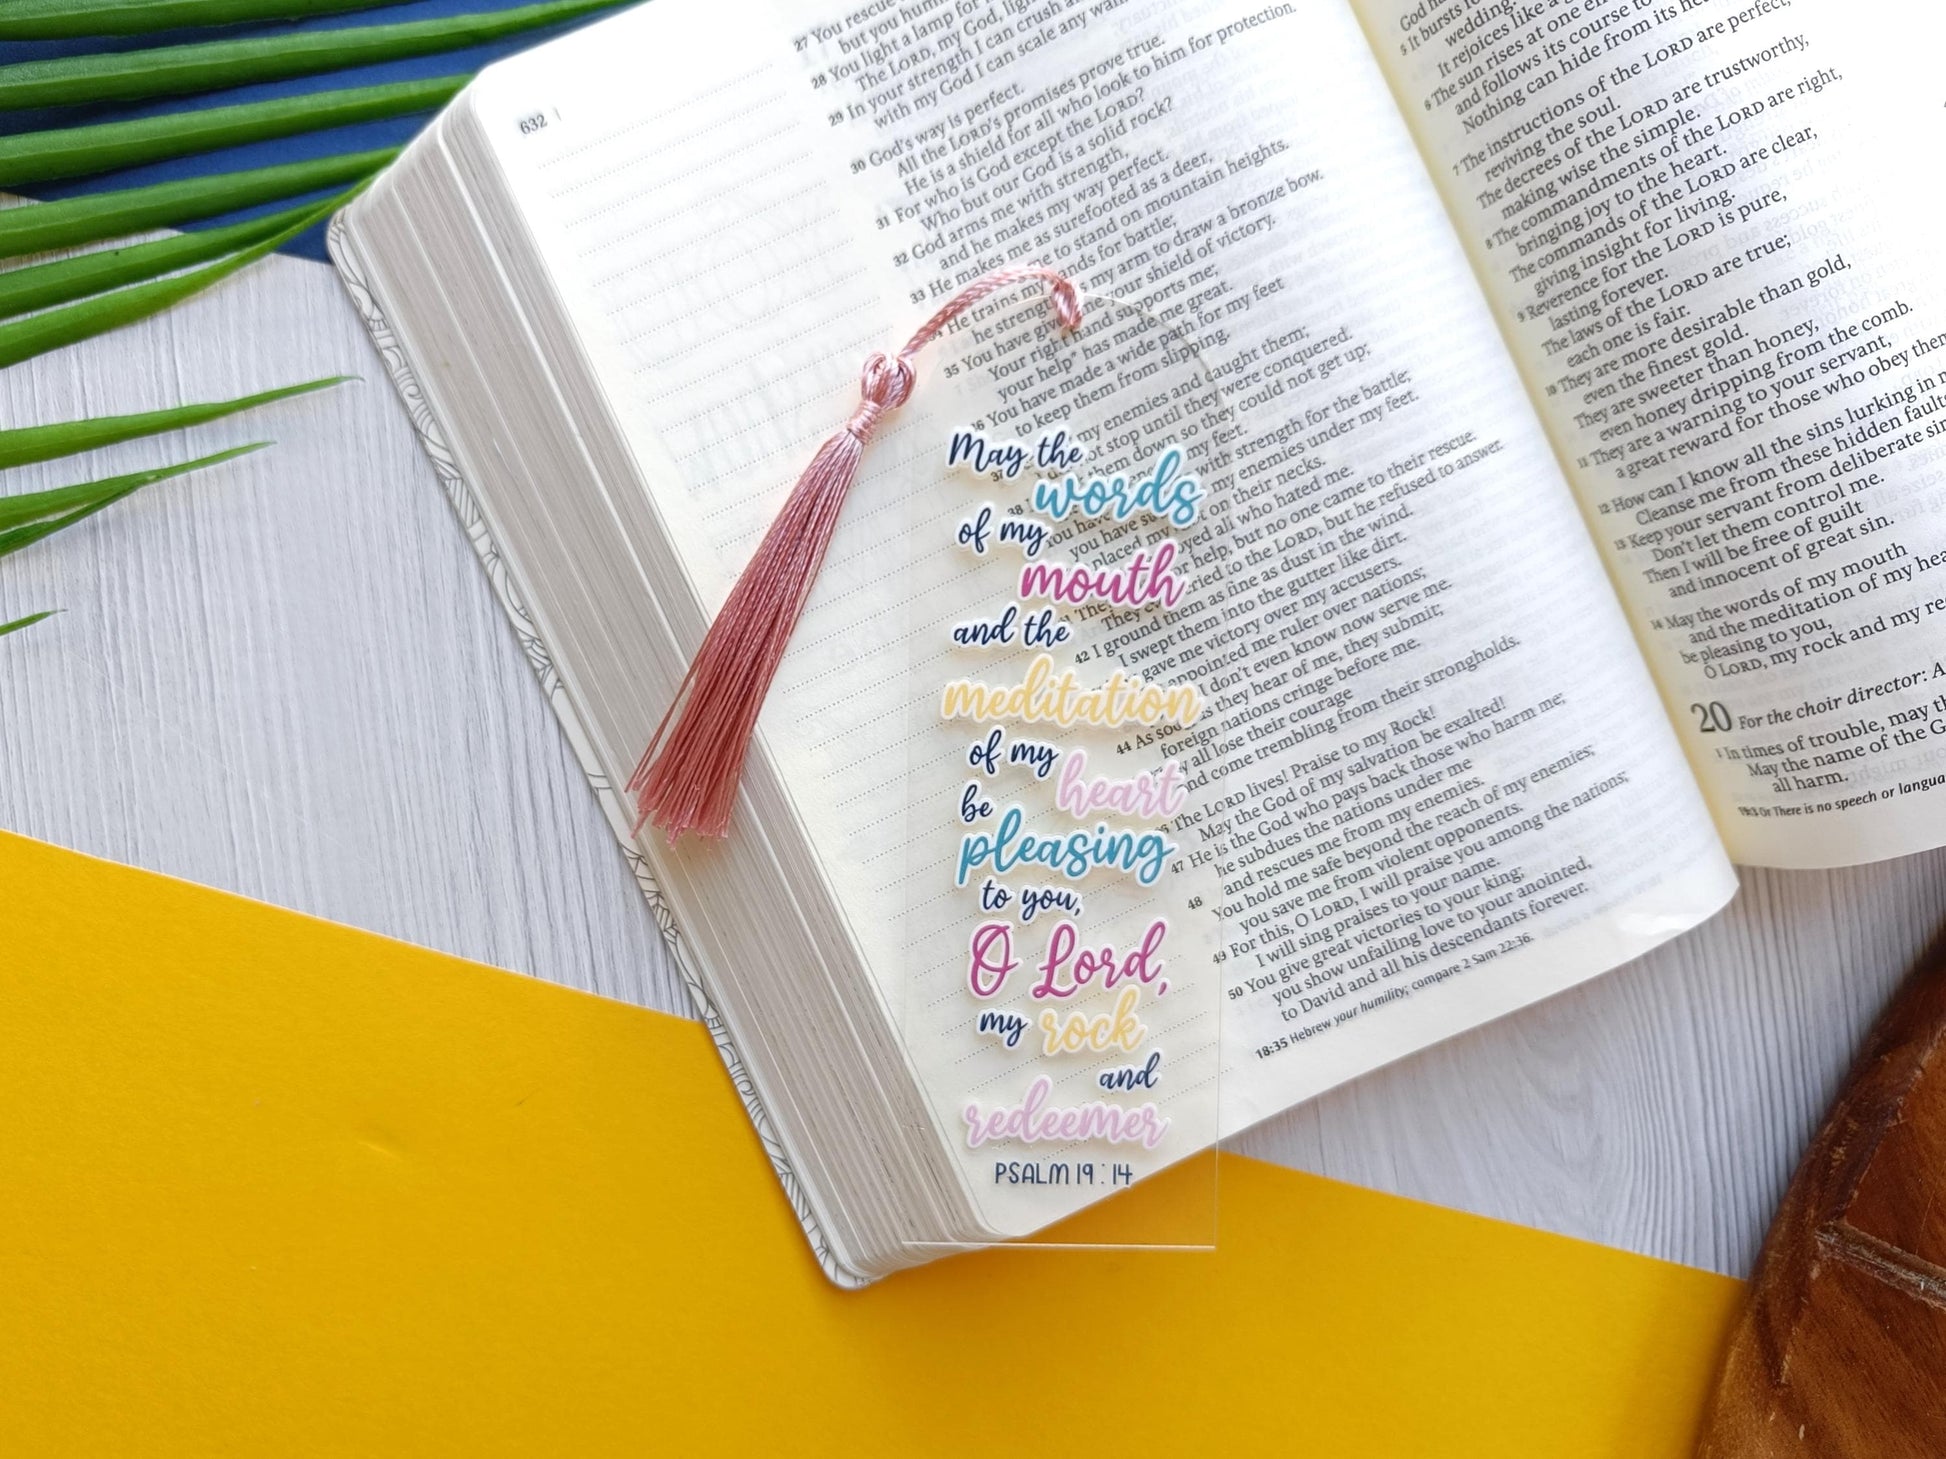 632 |
27 You rescue
but you hum
28 You light a lamp for
The LORD, my God, ligh
29 In your strength I can crush a
with my God I can scale any wall.
30 God's way is perfect.
All the LORD's promises prove true.
He is a shield for all who look to him for protection.
31 For who is God except the LORD?
Who but our God is a solid rock?
32 God arms me with strength,
and he makes my way perfect.
33 He makes me as surefooted as a deer,
me to stand on mountain heights.
He trains my ands for battle;
he strength my arm to draw a bronze bow.
35 You have give me your shield of victory.
Your right hand supports me;
your help* has made me great.
36 You have made a wide path for my feet
to keep them from slipping.
my enemies and caught them;
not stop until they were conquered.
them down so they could not get up;
my feet.
with strength for the battle;
my enemies under my feet.
on their necks.
all who hated me.
or help, but no one came to their rescue.
cried to the LORD, but he refused to answer.
42 I ground them as fine as dust in the wind.
I swept them into the gutter like dirt.
gave me victory over my accusers.
appointed me ruler over nations;
I don't even know now serve me.
44 As soon as they hear of me, they submit;
foreign nations cringe before me.
all lose their courage
and come trembling from their strongholds.
The LORD lives! Praise to my Rock!
May the God of my salvation be exalted!
47 He is the God who pays back those who harm me;
he subdues the nations under me
and rescues me from my enemies.
48 You hold me safe beyond the reach of my enemies;
you save me from violent opponents.
49 For this, O LORD, I will praise you among the nations;
I will sing praises to your name.
50 You give great victories to your king;
you show unfailing love to your anointed,
to David and all his descendants forever.
18:35 Hebrew your humility; compare 2 Sam 22:36.
May the
words
of my
mouth
and the
meditation
of my
heart
be
pleasing
to you,
O Lord,
my rock
and
redeemer
PSALM 19:14
God h
5 It bursts
wedding.
It rejoices like a
6 The sun rises at one
and follows its course to
Nothing can hide from its he
7 The instructions of the LORD are perfect,
reviving the soul.
The decrees of the LORD are trustworthy,
making wise the simple.
8 The commandments of the LORD are right,
bringing joy to the heart.
The commands of the LORD are clear,
giving insight for living.
9 Reverence for the LORD is pure,
lasting forever.
The laws of the LORD are true;
each one is fair.
10 They are more desirable than gold,
even the finest gold.
They are sweeter than honey,
even honey dripping from the comb.
11 They are a warning to your servant,
a great reward for those who obey then
12 How can I know all the sins lurking in
Cleanse me from these hidden fault
13 Keep your servant from deliberate sin
Don't let them control me.
Then I will be free of guilt
and innocent of great sin.
14 May the words of my mouth
and the meditation of my hea
be pleasing to you,
O LORD, my rock and my re
20 For the choir director: A
1 In times of trouble, may th
May the name of the G
all harm.
19:3 Or There is no speech or langua